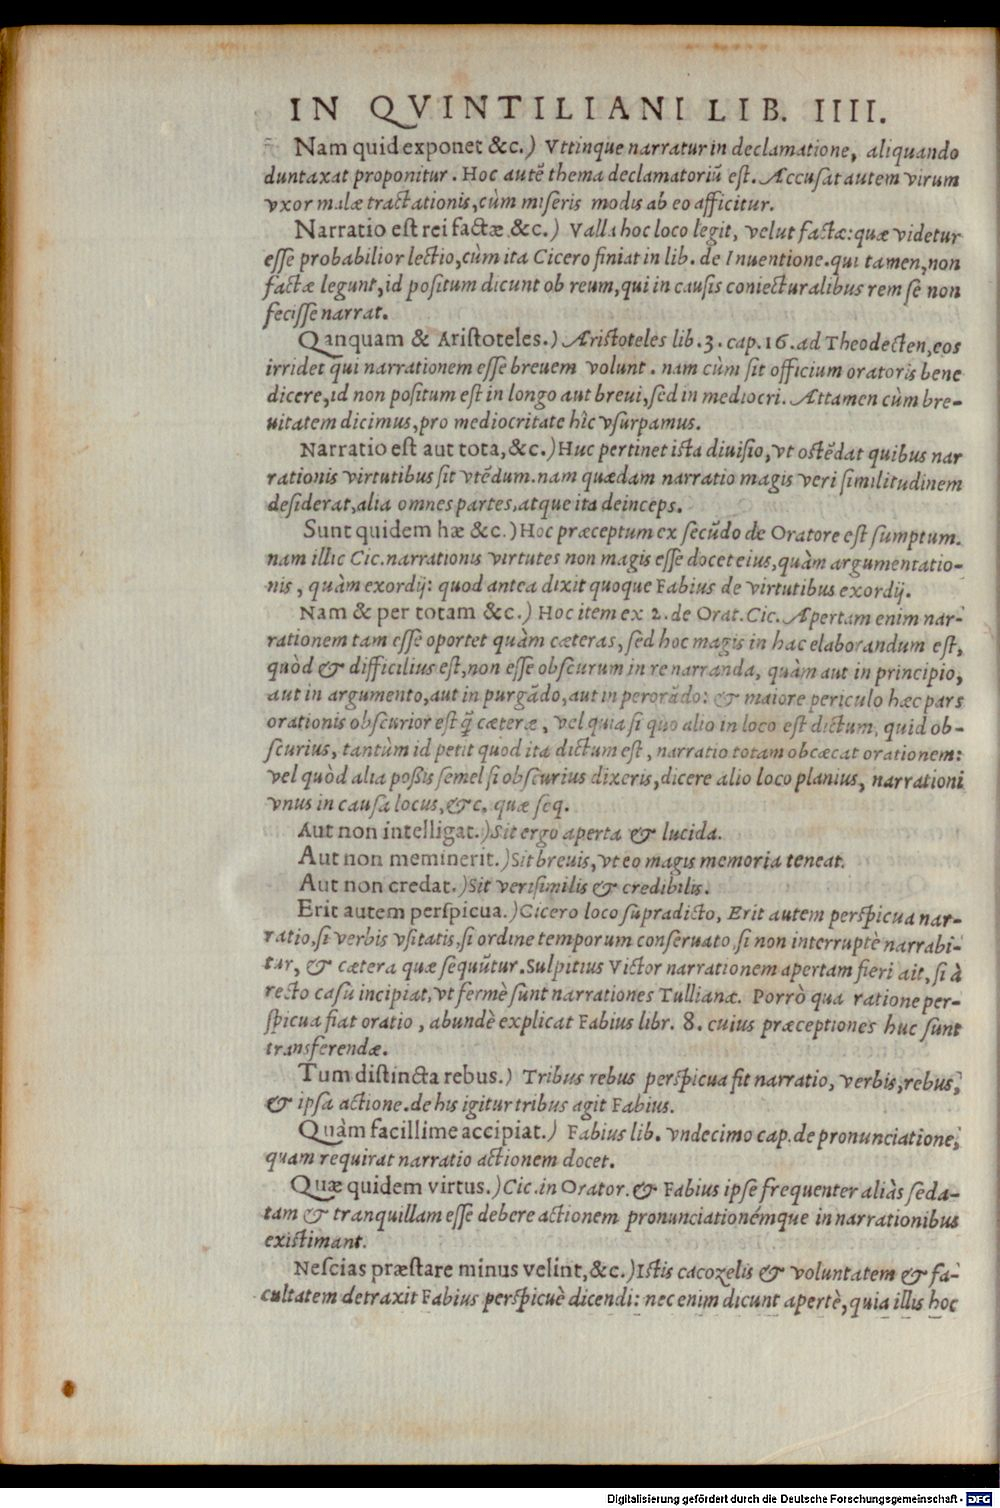 IN QVINTILIANI LIB. IIII.
Nam quid exponet &c.) Vttinque narratur in declamatione, aliquando
duntaxat proponitur. Hoc autẽ thema declamatoriũ est. Accusat autem virum
vxor malæ tractationis, cùm miseris modis ab eo afficitur.
Narratio est rei factæ &c.) Valla hoc loco legit, velut factæ: quæ videtur
esse probabilior lectio, cùm ita Cicero finiat in lib. de Inuentione. qui tamen, non
factæ legunt, id positum dicunt ob reum, qui in causis coniecturalibus rem se non
fecisse narrat.
Qanquam & Aristoteles.) Aristoteles lib. 3. cap. 16. ad Theodecten, eos
irridet qui narrationem esse breuem volunt. nam cùm sit officium oratoris bene
dicere, id non positum est in longo aut breui, sed in mediocri. Attamen cùm bre-
uitatem dicimus, pro mediocritate hîc vsurpamus.
Narratio est aut tota, &c.) Huc pertinet ista diuisio, vt ostẽdat quibus nar
rationis virtutibus sit vtẽdum. nam quædam narratio magis veri similitudinem
desiderat, alia omnes partes, atque ita deinceps.
Sunt quidem hæ &c.) Hoc præceptum ex secũdo de Oratore est sumptum.
nam illic Cic. narrationis virtutes non magis esse docet eius, quàm argumentatio-
nis, quàm exordij: quod antea dixit quoque Fabius de virtutibus exordij.
Nam & per totam &c.) Hoc item ex 2. de Orat. Cic. Apertam enim nar-
rationem tam esse oportet quàm cæteras, sed hoc magis in hac elaborandum est,
quòd & difficilius est, non esse obscurum in re narranda, quàm aut in principio,
aut in argumento, aut in purgãdo, aut in perorãdo: & maiore periculo hæc pars
orationis obscurior est q̃ cæteræ, vel quia si quo alio in loco est dictum, quid ob-
scurius, tantùm id petit quod ita dictum est, narratio totam obcæcat orationem:
vel quòd alia possis semel si obscurius dixeris, dicere alio loco planius, narrationi
vnus in causa locus, &c. quæ seq.
Aut non intelligat.) Sit ergo aperta & lucida.
Aut non meminerit.) Sit breuis, vt eo magis memoria teneat.
Aut non credat.) Sit verisimilis & credibilis.
Erit autem perspicua.) Cicero loco supradicto, Erit autem perspicua nar-
ratio, si verbis vsitatis, si ordine temporum conseruato, si non interruptè narrabi-
tur, & cætera quæ sequũtur. Sulpitius Victor narrationem apertam fieri ait, si à
recto casu incipiat, vt fermè sunt narrationes Tullianæ. Porrò qua ratione per-
spicua fiat oratio, abundè explicat Fabius libr. 8. cuius præceptiones huc sunt
transferendæ.
Tum distincta rebus.) Tribus rebus perspicua fit narratio, verbis, rebus,
& ipsa actione. de his igitur tribus agit Fabius.
Quàm facillime accipiat.) Fabius lib. vndecimo cap. de pronunciatione,
quam requirat narratio actionem docet.
Quæ quidem virtus.) Cic. in Orator. & Fabius ipse frequenter aliàs seda-
tam & tranquillam esse debere actionem pronunciationémque in narrationibus
existimant.
Nescias præstare minus velint, &c.) Istis cacozelis & voluntatem & fa-
cultatem detraxit Fabius perspicuè dicendi: nec enim dicunt apertè, quia illis hoc
Digitalisierung gefördert durch die Deutsche Forschungsgemeinschaft - DFG